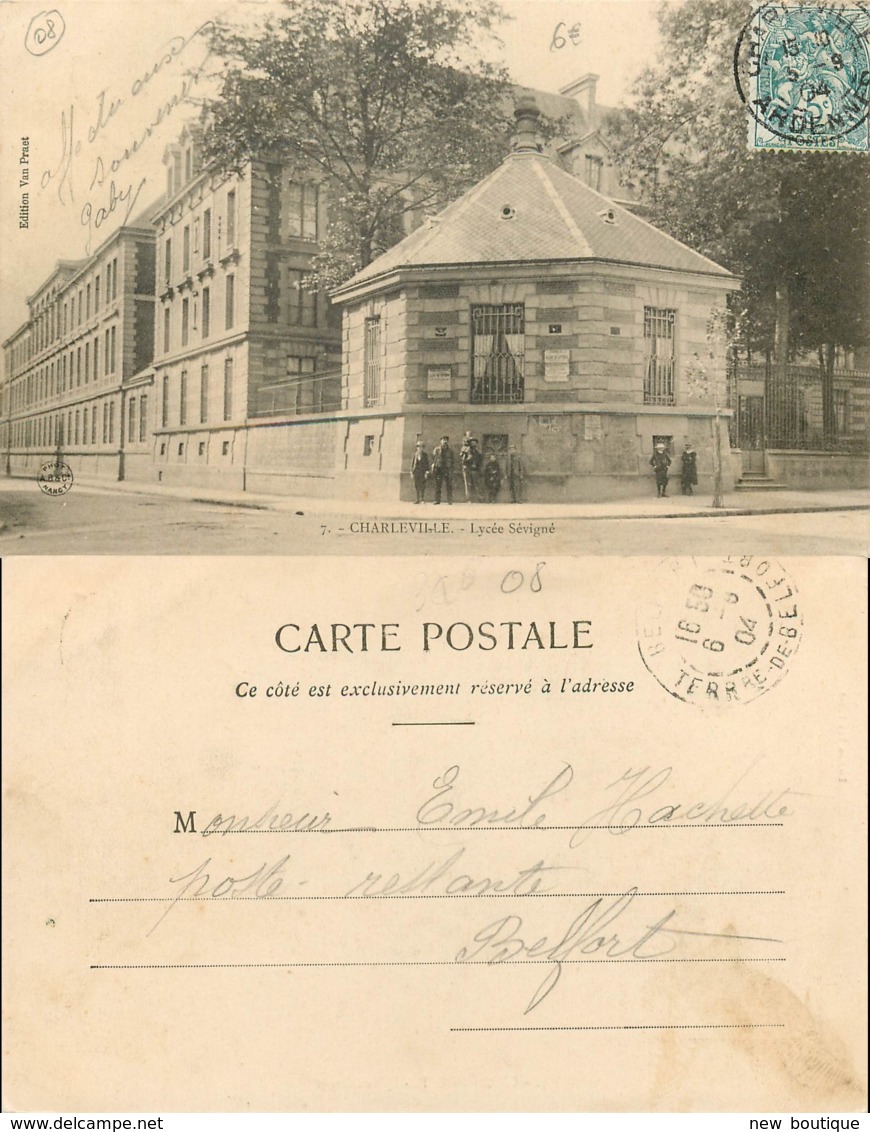 08
6€
CHARLEVILLE
15 10
5 -9
04
ARDENNES
5c
POSTES
Edition Van Praet
affectueux
souvenir
Gaby
PHOT
A.B&C
NANCY
7. - CHARLEVILLE. - Lycée Sévigné
08
CARTE POSTALE
Ce côté est exclusivement réservé à l'adresse
BELFORT
16 50
6 -9
04
TERRRE-DE-BELFORT
Monsieur Emile Hachette
poste-restante
Belfort
new boutique